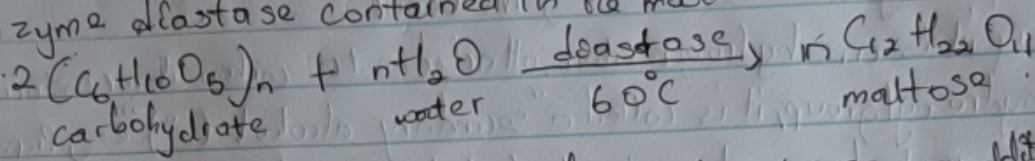 zyme diastase contained in the
2(C6H10O5)n + nH2O diastase n C12H22O11
carbohydrate water 60°C maltose